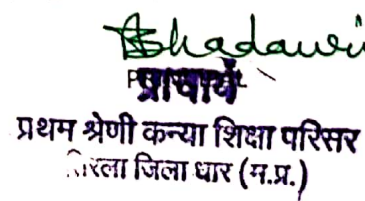 Bhadauri
प्राचार्य
प्रथम श्रेणी कन्या शिक्षा परिसर
तिरला जिला धार (म.प्र.)